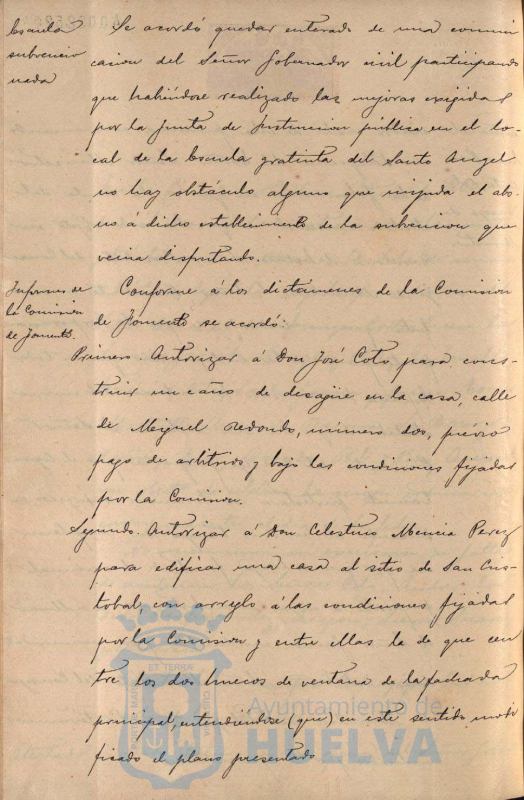 Escuela
subvencio
nada
Se acordó quedar enterado de una comuni
cacion del Señor Gobernador civil participando
que habiéndose realizado las mejoras exigidas
por la Junta de Instruccion pública en el lo-
cal de la Escuela gratuita del Santo Angel
no hay obstáculo alguno que impida el abo-
no á dicho establecimiento de la subvencion que
venia disfrutando.
Informes de
la Comision
de Fomento.
Conforme á los dictámenes de la Comision
de Fomento se acordó:
Primero. Autorizar á Don José Coto para cons-
truir un caño de desagüe en la casa, calle
de Miguel Redondo, número dos, prévio
pago de arbitrios y bajo las condiciones fijadas
por la Comision.
Segundo. Autorizar á Don Celestino Mencia Perez
para edificar una casa al sitio de San Cris-
tobal, con arreglo á las condiciones fijadas
por la Comision y entre ellas la de que cen
tre los dos huecos de ventana de la fachada
principal, entendiendose (que) en este sentido modi
ficado el plano presentado
ET TERRÆ
Ayuntamiento de
HUELVA